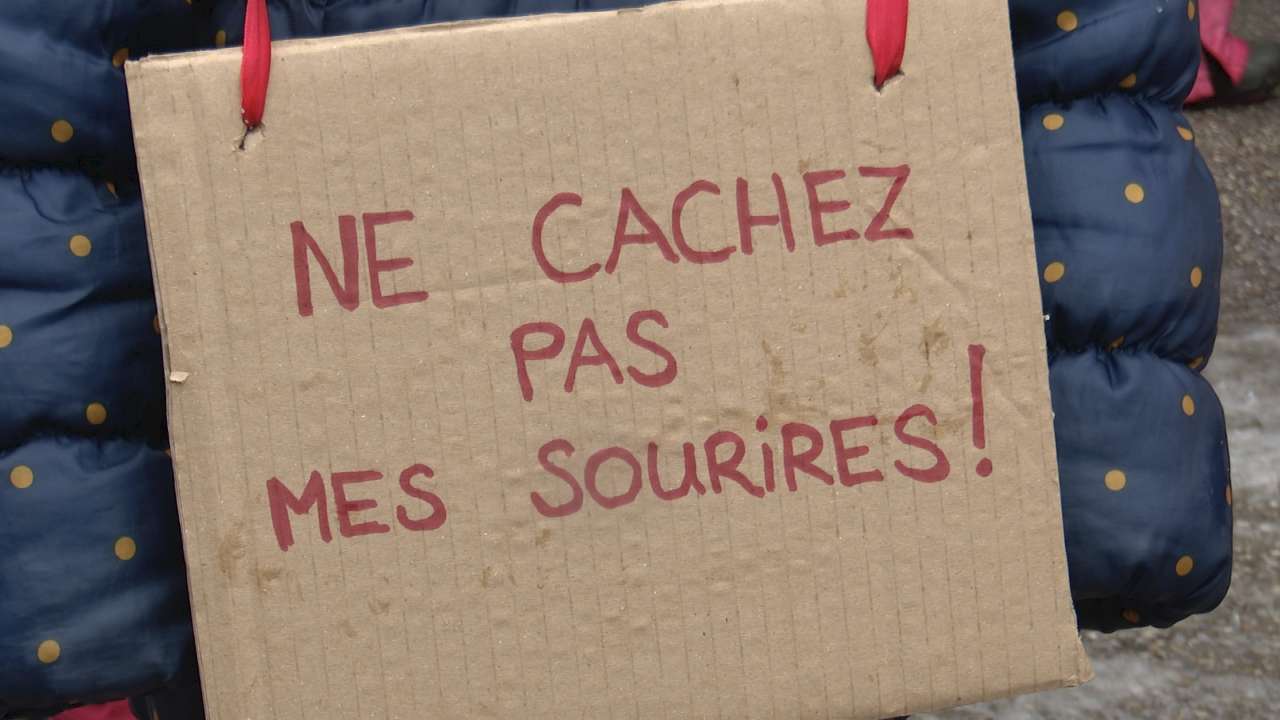 NE CACHEZ
PAS
MES SOURIRES!